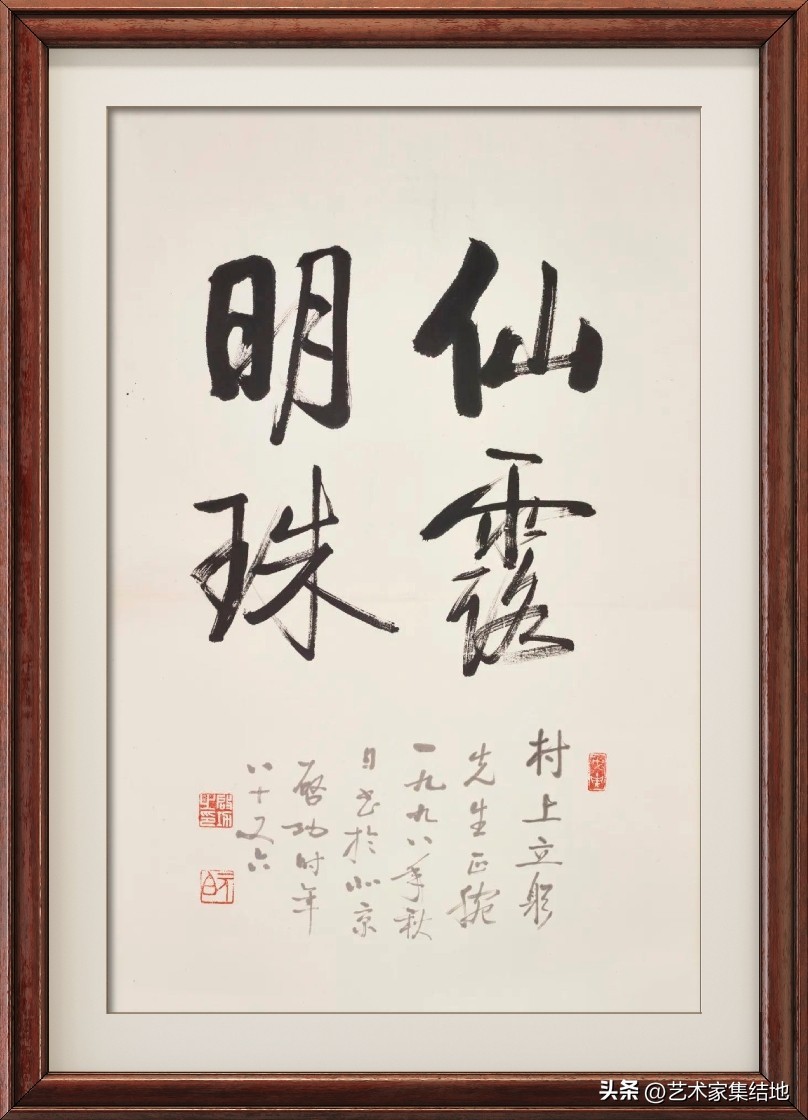 仙露
明珠
村上立躬
先生正腕
一九九八年秋
日书於北京
启功时年
八十又六
启功
之印
元白
头条 @艺术家集结地